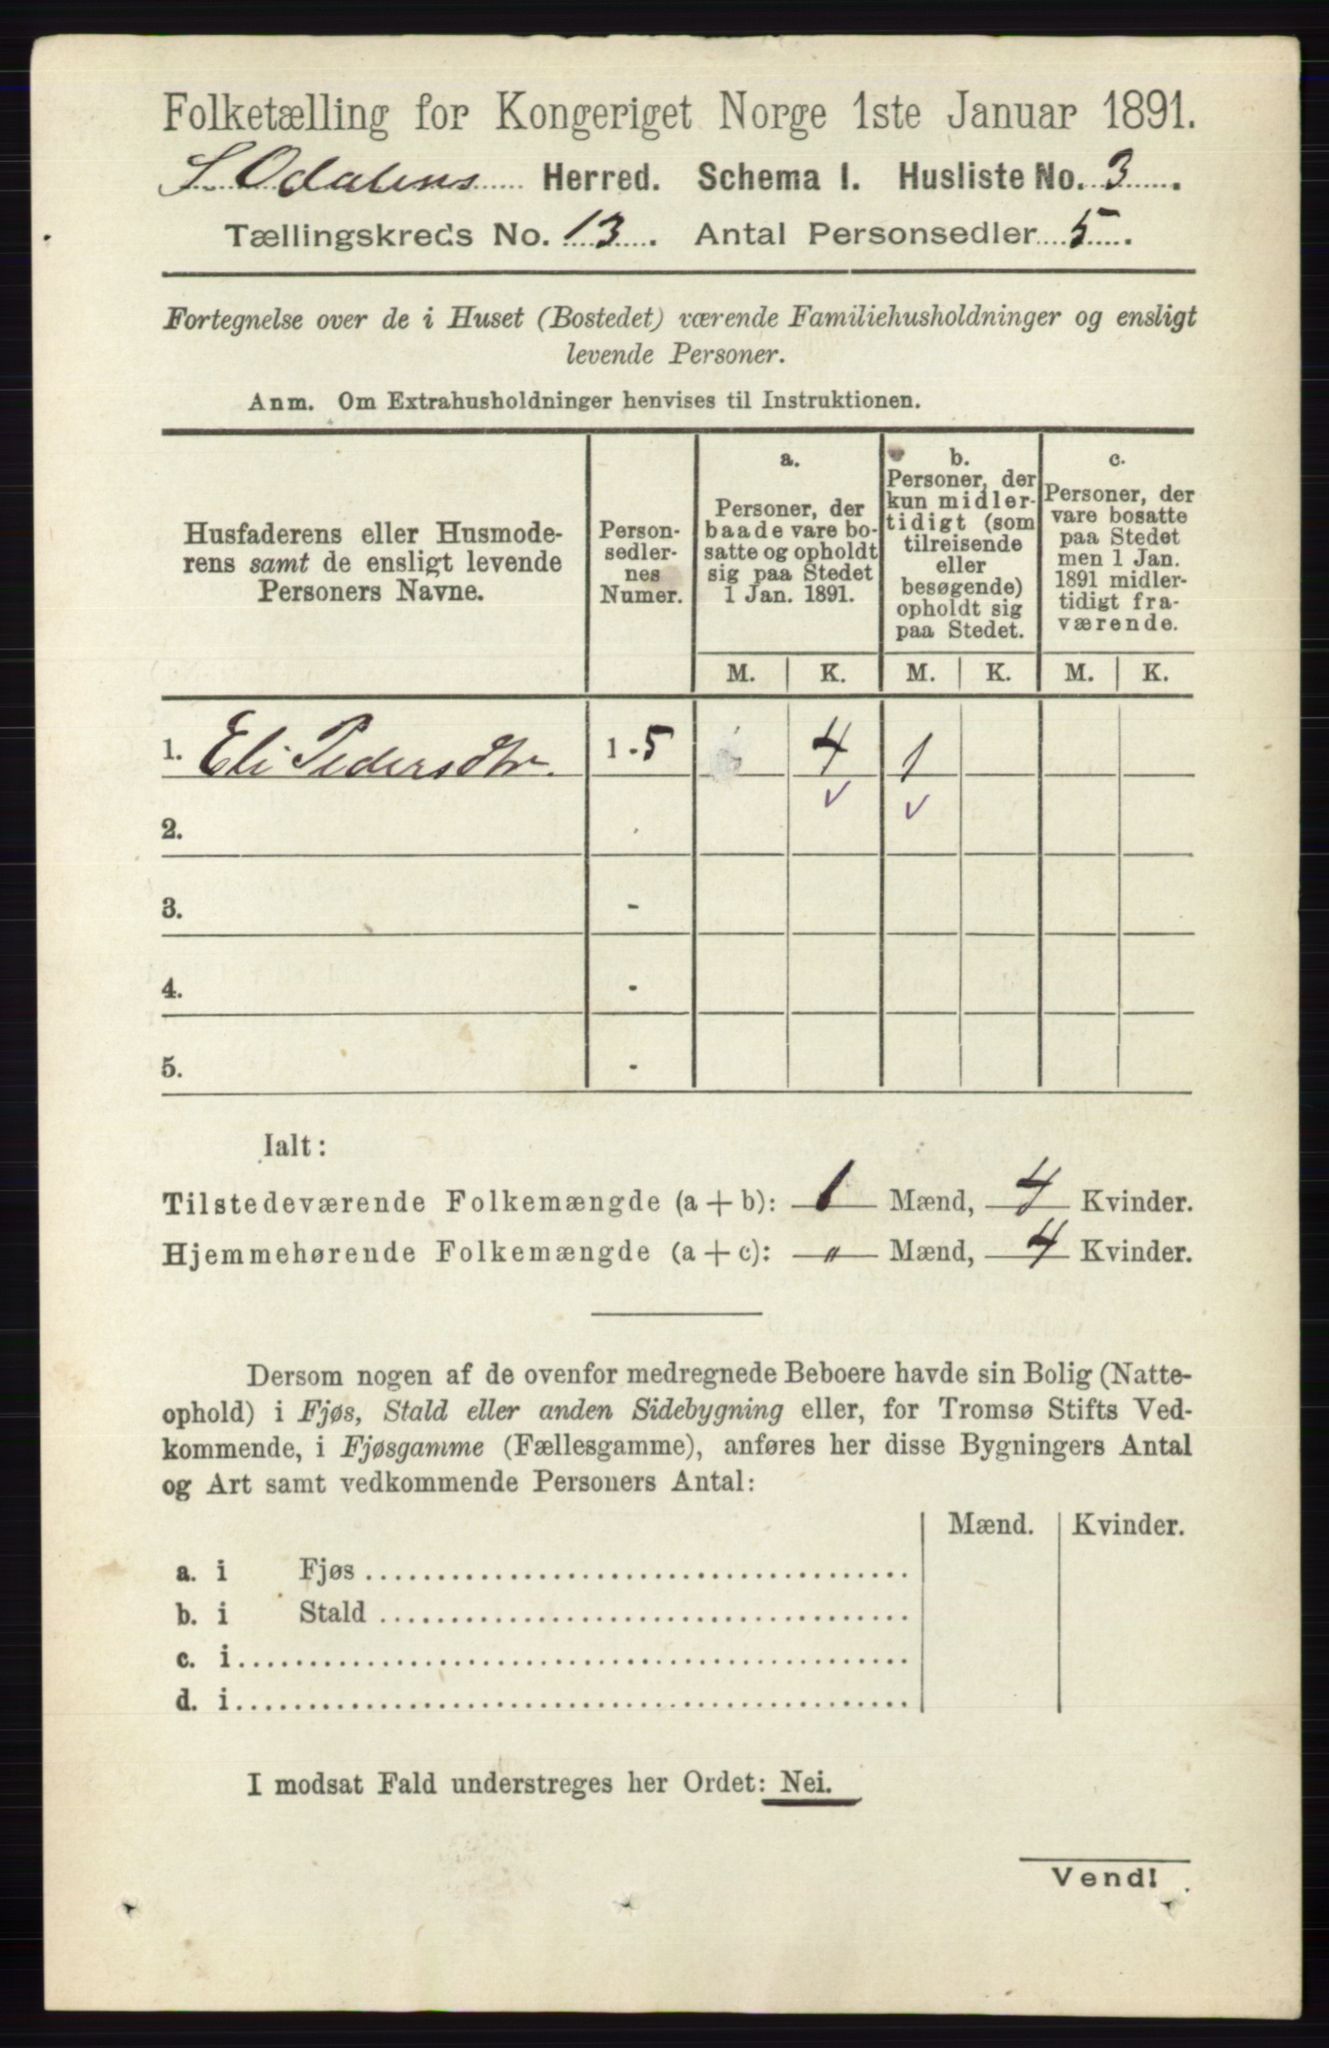 Folketælling for Kongeriget Norge 1ste Januar 1891.
S. Odalens Herred. Schema I. Husliste No. 3.
Tællingskreds No. 13. Antal Personsedler 5.
Fortegnelse over de i Huset (Bostedet) værende Familiehusholdninger og ensligt
levende Personer.
Anm. Om Extrahusholdninger henvises til Instruktionen.
Husfaderens eller Husmode-
rens samt de ensligt levende
Personers Navne.
Person-
sedler-
nes
Numer.
a.
Personer, der
baade vare bo-
satte og opholdt
sig paa Stedet
1 Jan. 1891.
b.
Personer, der
kun midler-
tidigt (som
tilreisende
eller
besøgende)
opholdt sig
paa Stedet.
c.
Personer, der
vare bosatte
paa Stedet
men 1 Jan.
1891 midler-
tidigt fra-
værende.
M. K. M. K. M. K.
1. Eli Pedersdtr. 1 - 5 4 1
2.
3. -
4. -
5. -
Ialt:
Tilstedeværende Folkemængde (a + b): 1 Mænd, 4 Kvinder.
Hjemmehørende Folkemængde (a + c): „ Mænd, 4 Kvinder.
Dersom nogen af de ovenfor medregnede Beboere havde sin Bolig (Natte-
ophold) i Fjøs, Stald eller anden Sidebygning eller, for Tromsø Stifts Ved-
kommende, i Fjøsgamme (Fællesgamme), anføres her disse Bygningers Antal
og Art samt vedkommende Personers Antal:
Mænd. Kvinder.
a. i Fjøs
b. i Stald
c. i
d. i
I modsat Fald understreges her Ordet: Nei.
Vend!